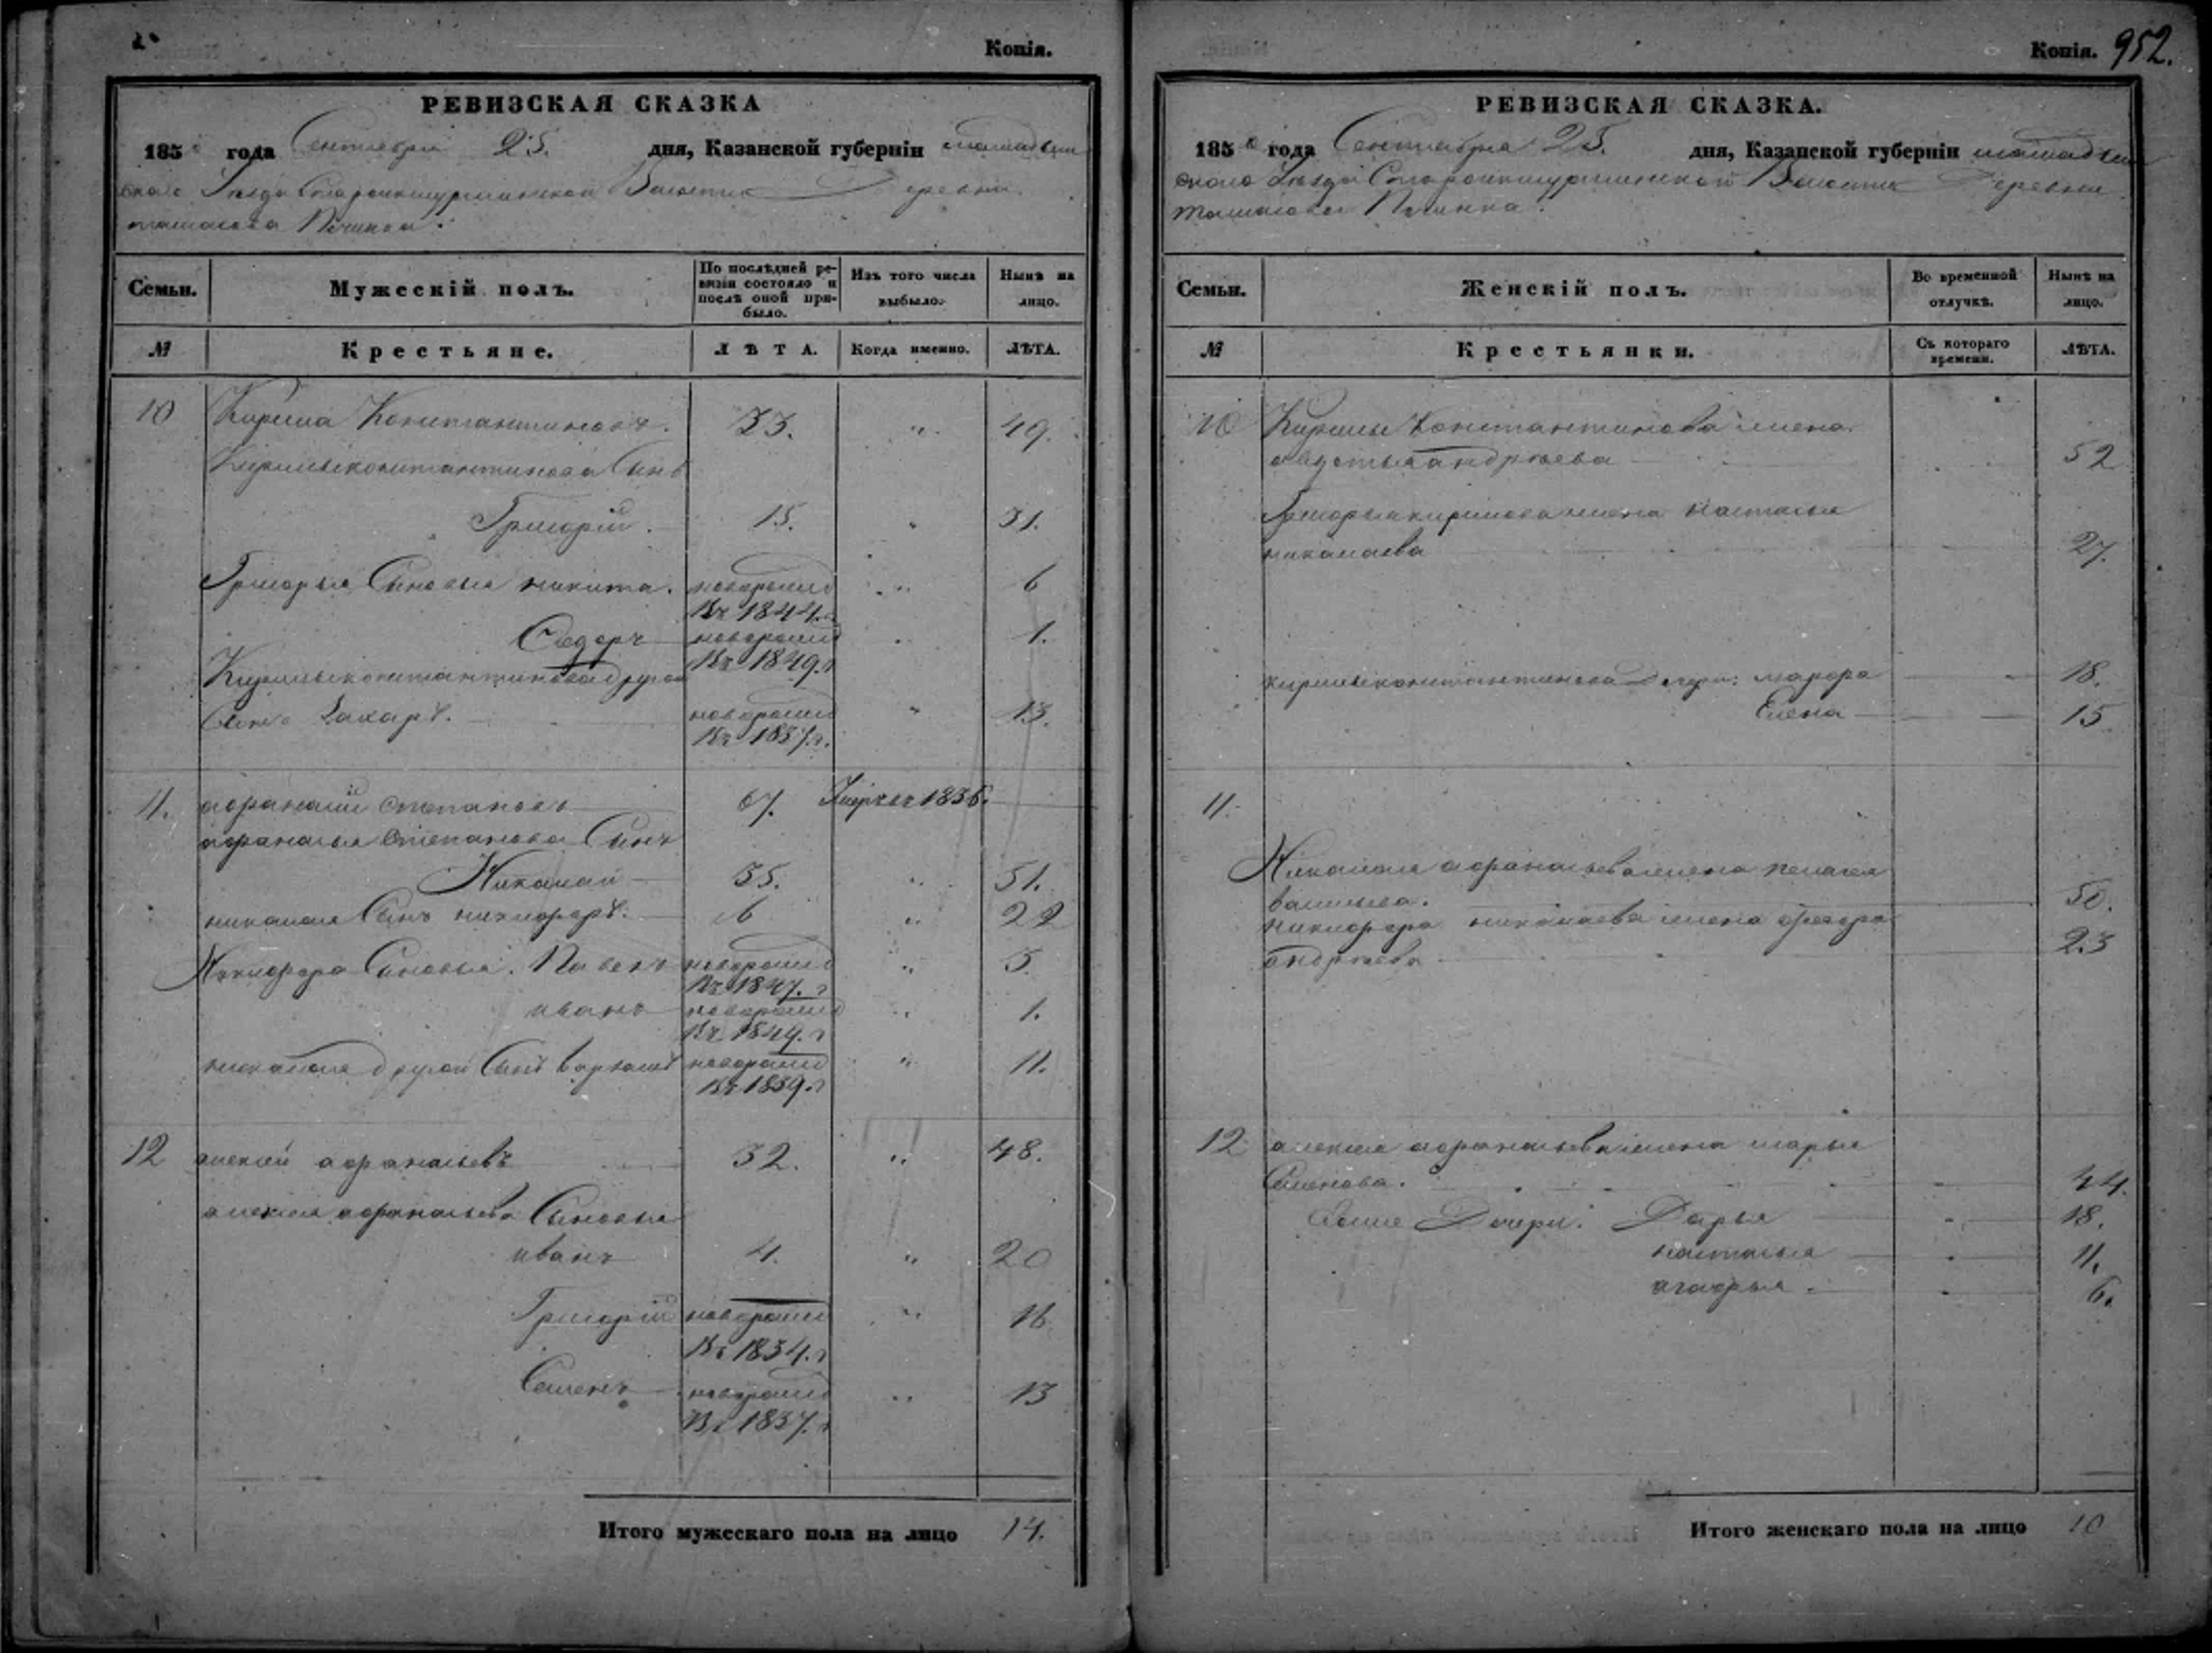 Копія.
РЕВИЗСКАЯ СКАЗКА
1850 года Сентября 25. дня, Казанской губерніи
Уѣзда Волости Деревни
Починка.
Семьи.
Мужескій полъ.
По послѣдней ре-
визіи состояло и
послѣ оной при-
было.
Изъ того числа
выбыло.
Нынѣ на
лицо.
№
Крестьяне.
ЛѢТА.
Когда именно.
ЛѢТА.
10 Кирила Константиновъ. 33. " 49.
Кирилы Константинова Сынъ
Григорій. 15. " 31.
Григорья Сыновья никита. новорожд " 6
Въ 1844.г
Федоръ новорожд " 1.
Въ 1849.г
Кирилы константинова другой
Сынъ Захаръ. новорожд " 13.
Въ 1837.г.
11. афанасій степановъ 67. Умеръ въ 1836.
афанасья Степанова Сынъ
Николай 35. " 51.
николая Сынъ никифоръ. 6 " 22
Никифора Сыновья. Павелъ новорожд " 3.
Въ 1847.г
иванъ новорожд " 1.
Въ 1849.г
николая другой Сынъ новорожд " 11.
Въ 1839.г
12 алексей афанасьевъ 32. " 48.
алексея афанасьева Сыновья
иванъ 4. " 20
Григорій новорожд " 16
Въ 1834.г
Семенъ новорожд " 13
Въ 1837.г
Итого мужескаго пола на лицо 14.
Копія. 952.
РЕВИЗСКАЯ СКАЗКА.
1850 года Сентября 25. дня, Казанской губерніи
Уѣзда Волости Деревни
Починка.
Семьи.
Женскій полъ.
Во временной
отлучкѣ.
Нынѣ на
лицо.
№
Крестьянки.
Съ котораго
времени.
ЛѢТА.
10 Кирилы Константинова жена
авдотья андреева 52
Григорья кирилова жена настасья
николаева 27.
кирилы константинова Дочери: 18.
Елена 15
11.
Николая афанасьева жена пелагея
васильева. 50.
никифора николаева жена федора
андреева 23
12 алексея афанасьева жена марья
Семенова. 44.
Дочери: Дарья 18.
настасья 11.
агафья. 6.
Итого женскаго пола на лицо 10